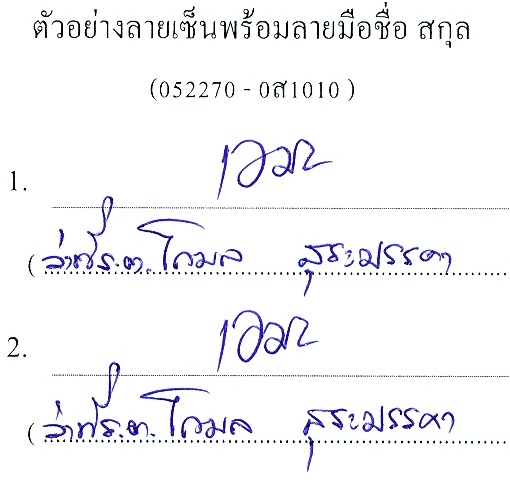 ตัวอย่างลายเซ็นพร้อมลายมือชื่อ สกุล
(052270 - 0ส1010 )
1.
( ว่าที่ร.ต. โกมล สุระมรรคา
2.
( ว่าที่ร.ต. โกมล สุระมรรคา